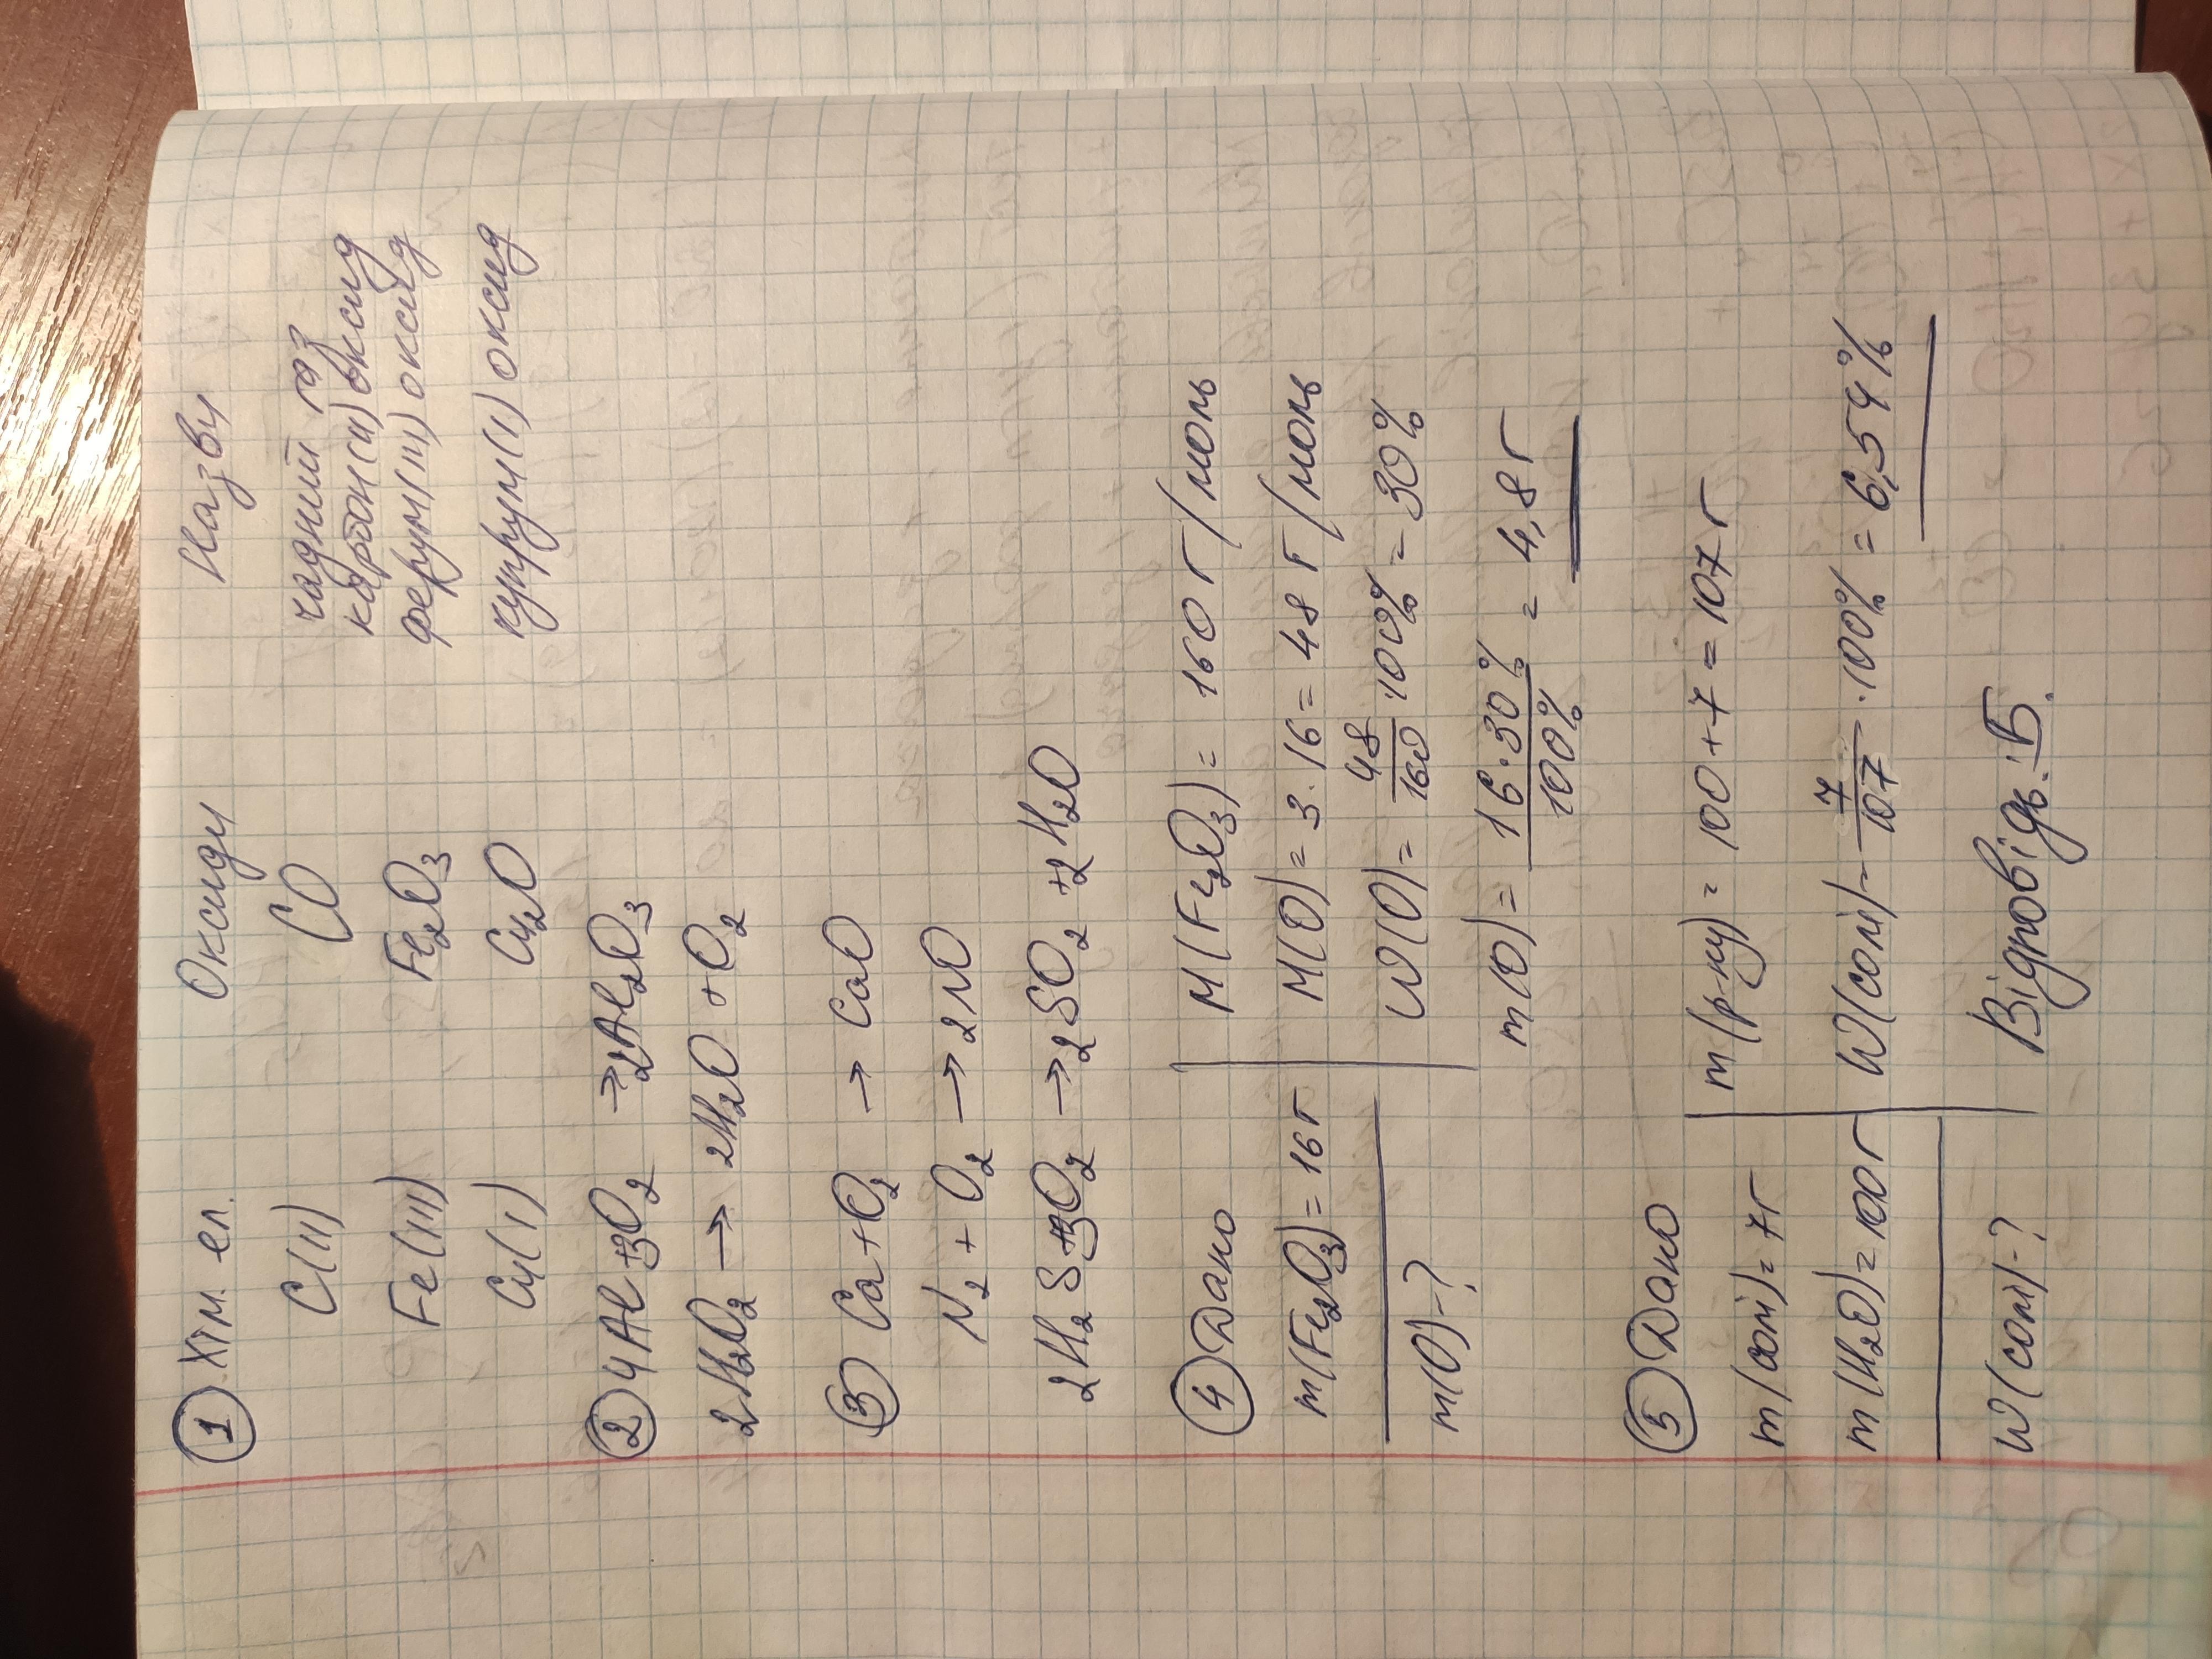 1 Хім. ел. Оксиди Назви
C(II) CO чадний газ
карбон(II) оксид
Fe(III) Fe2O3 ферум(III) оксид
Cu(I) Cu2O купрум(I) оксид
2 4Al+3O2 →2Al2O3
2H2O2 → 2H2O +O2
3 Ca+O2 → CaO
N2 + O2 → 2NO
2H2S+3O2 →2SO2 +2H2O
4 Дано
M(Fe2O3)= 160 г/моль
m(Fe2O3)=16г
M(O)=3·16=48 г/моль
W(O)= 48/160 ·100%=30%
m(O)-?
m(O)= 16·30%/100% = 4,8г
5 Дано
m(солі)=7г
m(р-ну)= 100+7=107г
m(H2O)=100г
W(солі)- 7/107 ·100% = 6,54%
W(солі-?
Відповідь: Б.